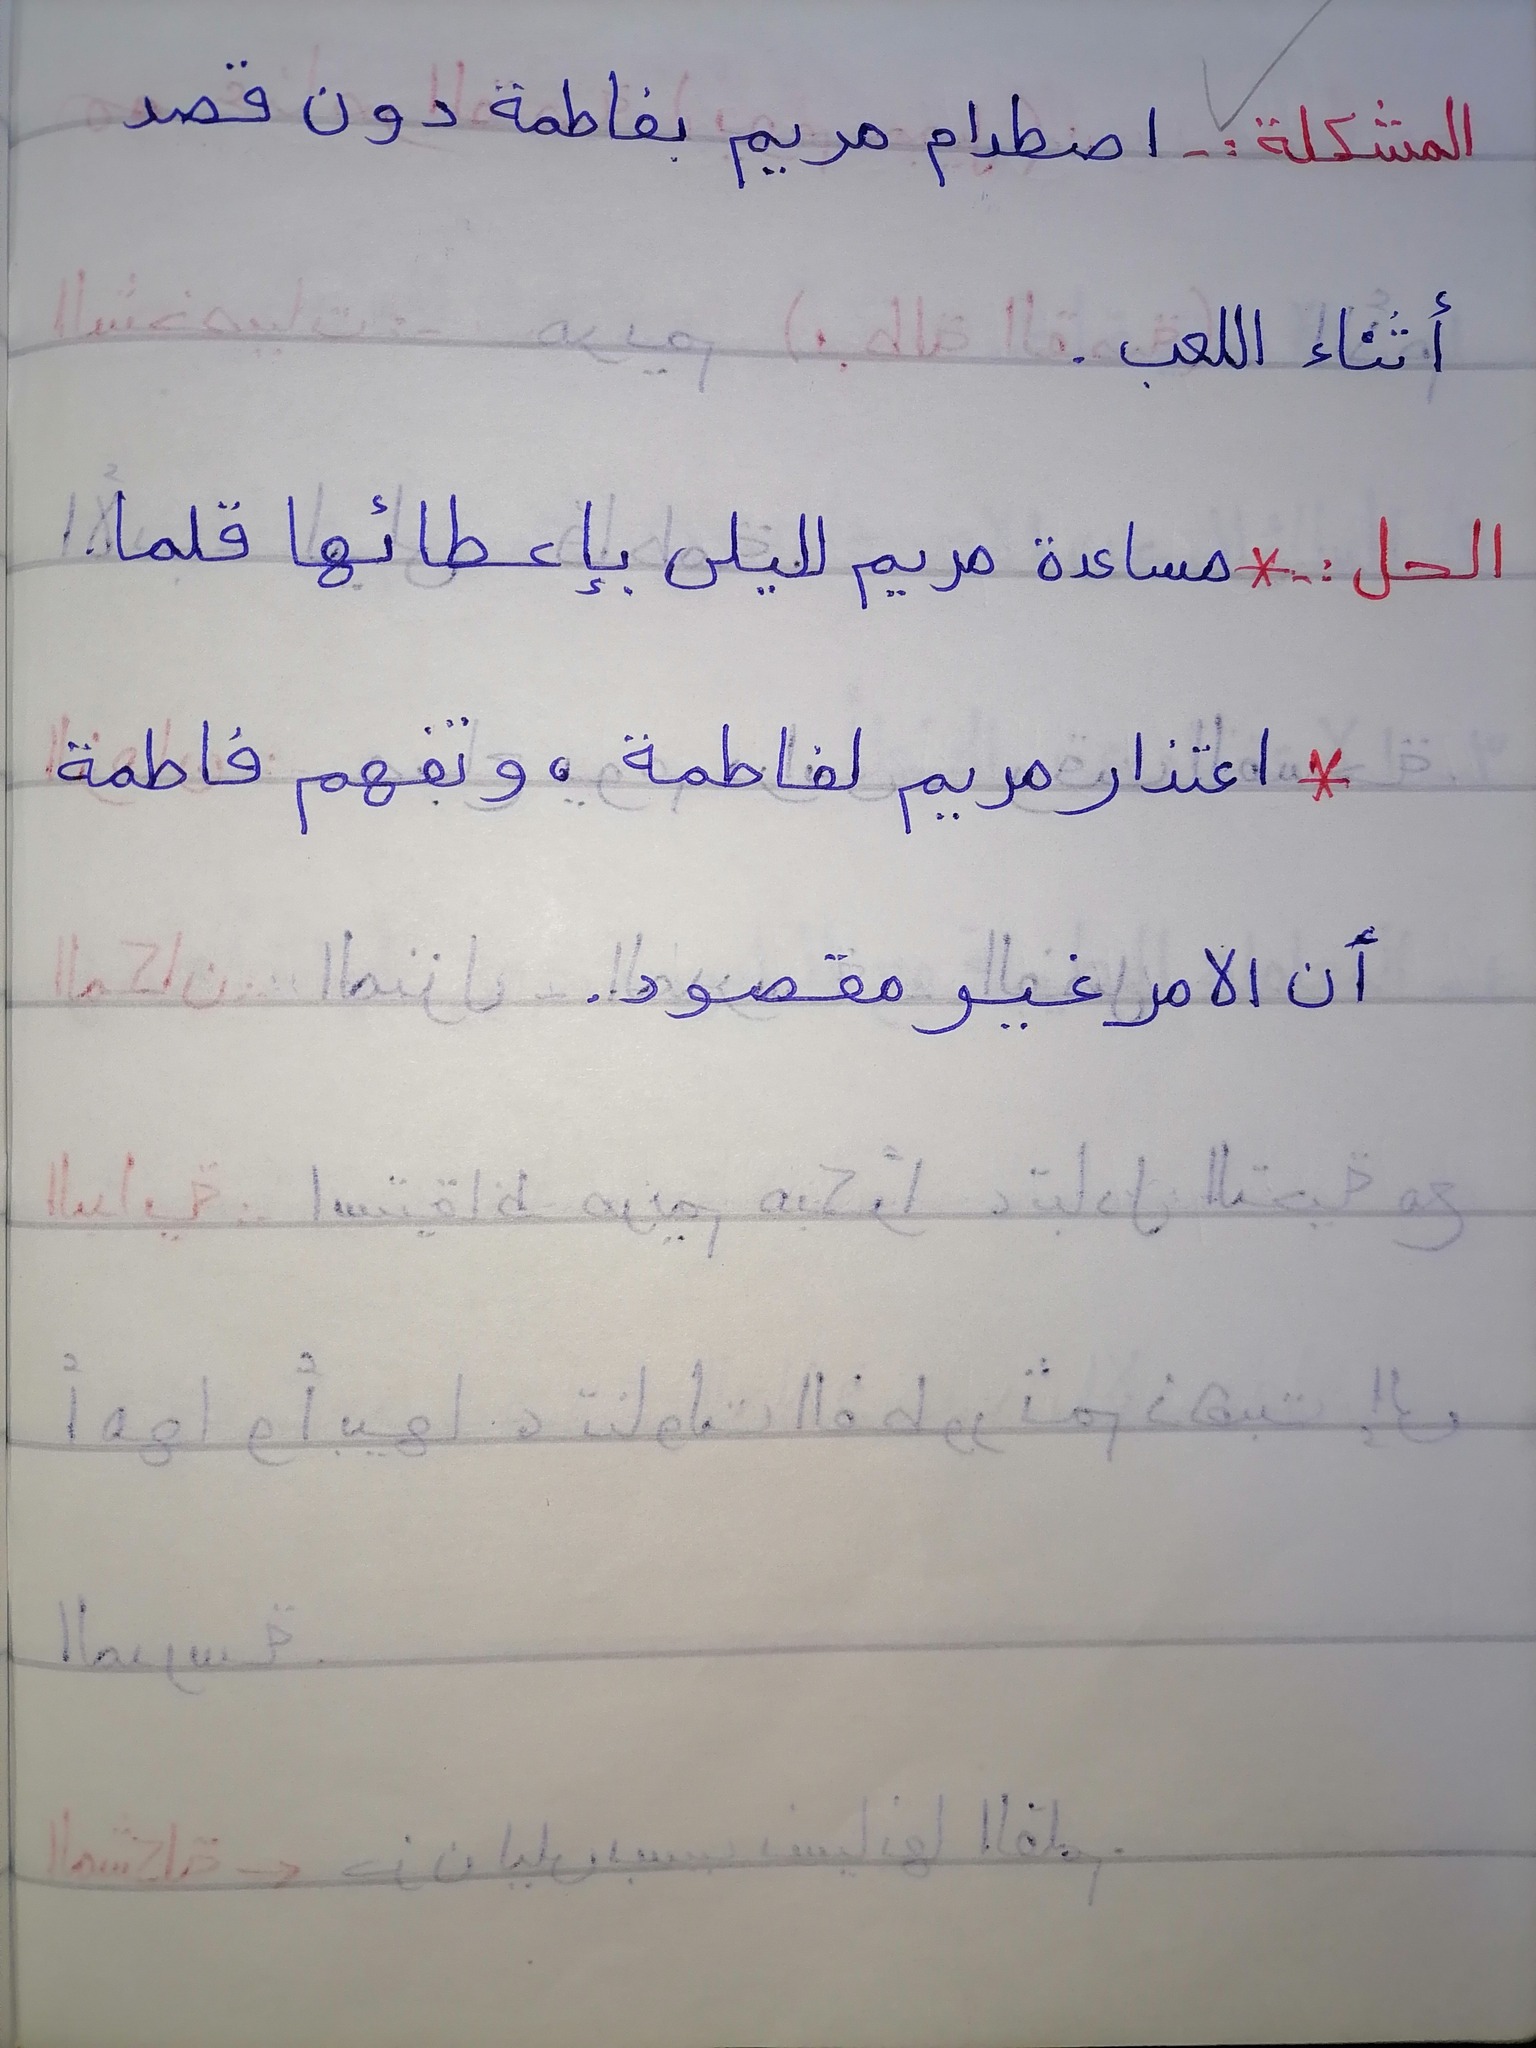 المشكلة :- اصطدام مريم بفاطمة دون قصد
أثناء اللعب .
الحل :- * مساعدة مريم لليلى بإعطائها قلماً.
* اعتذار مريم لفاطمة ، وتفهم فاطمة
أن الامر غير مقصود.